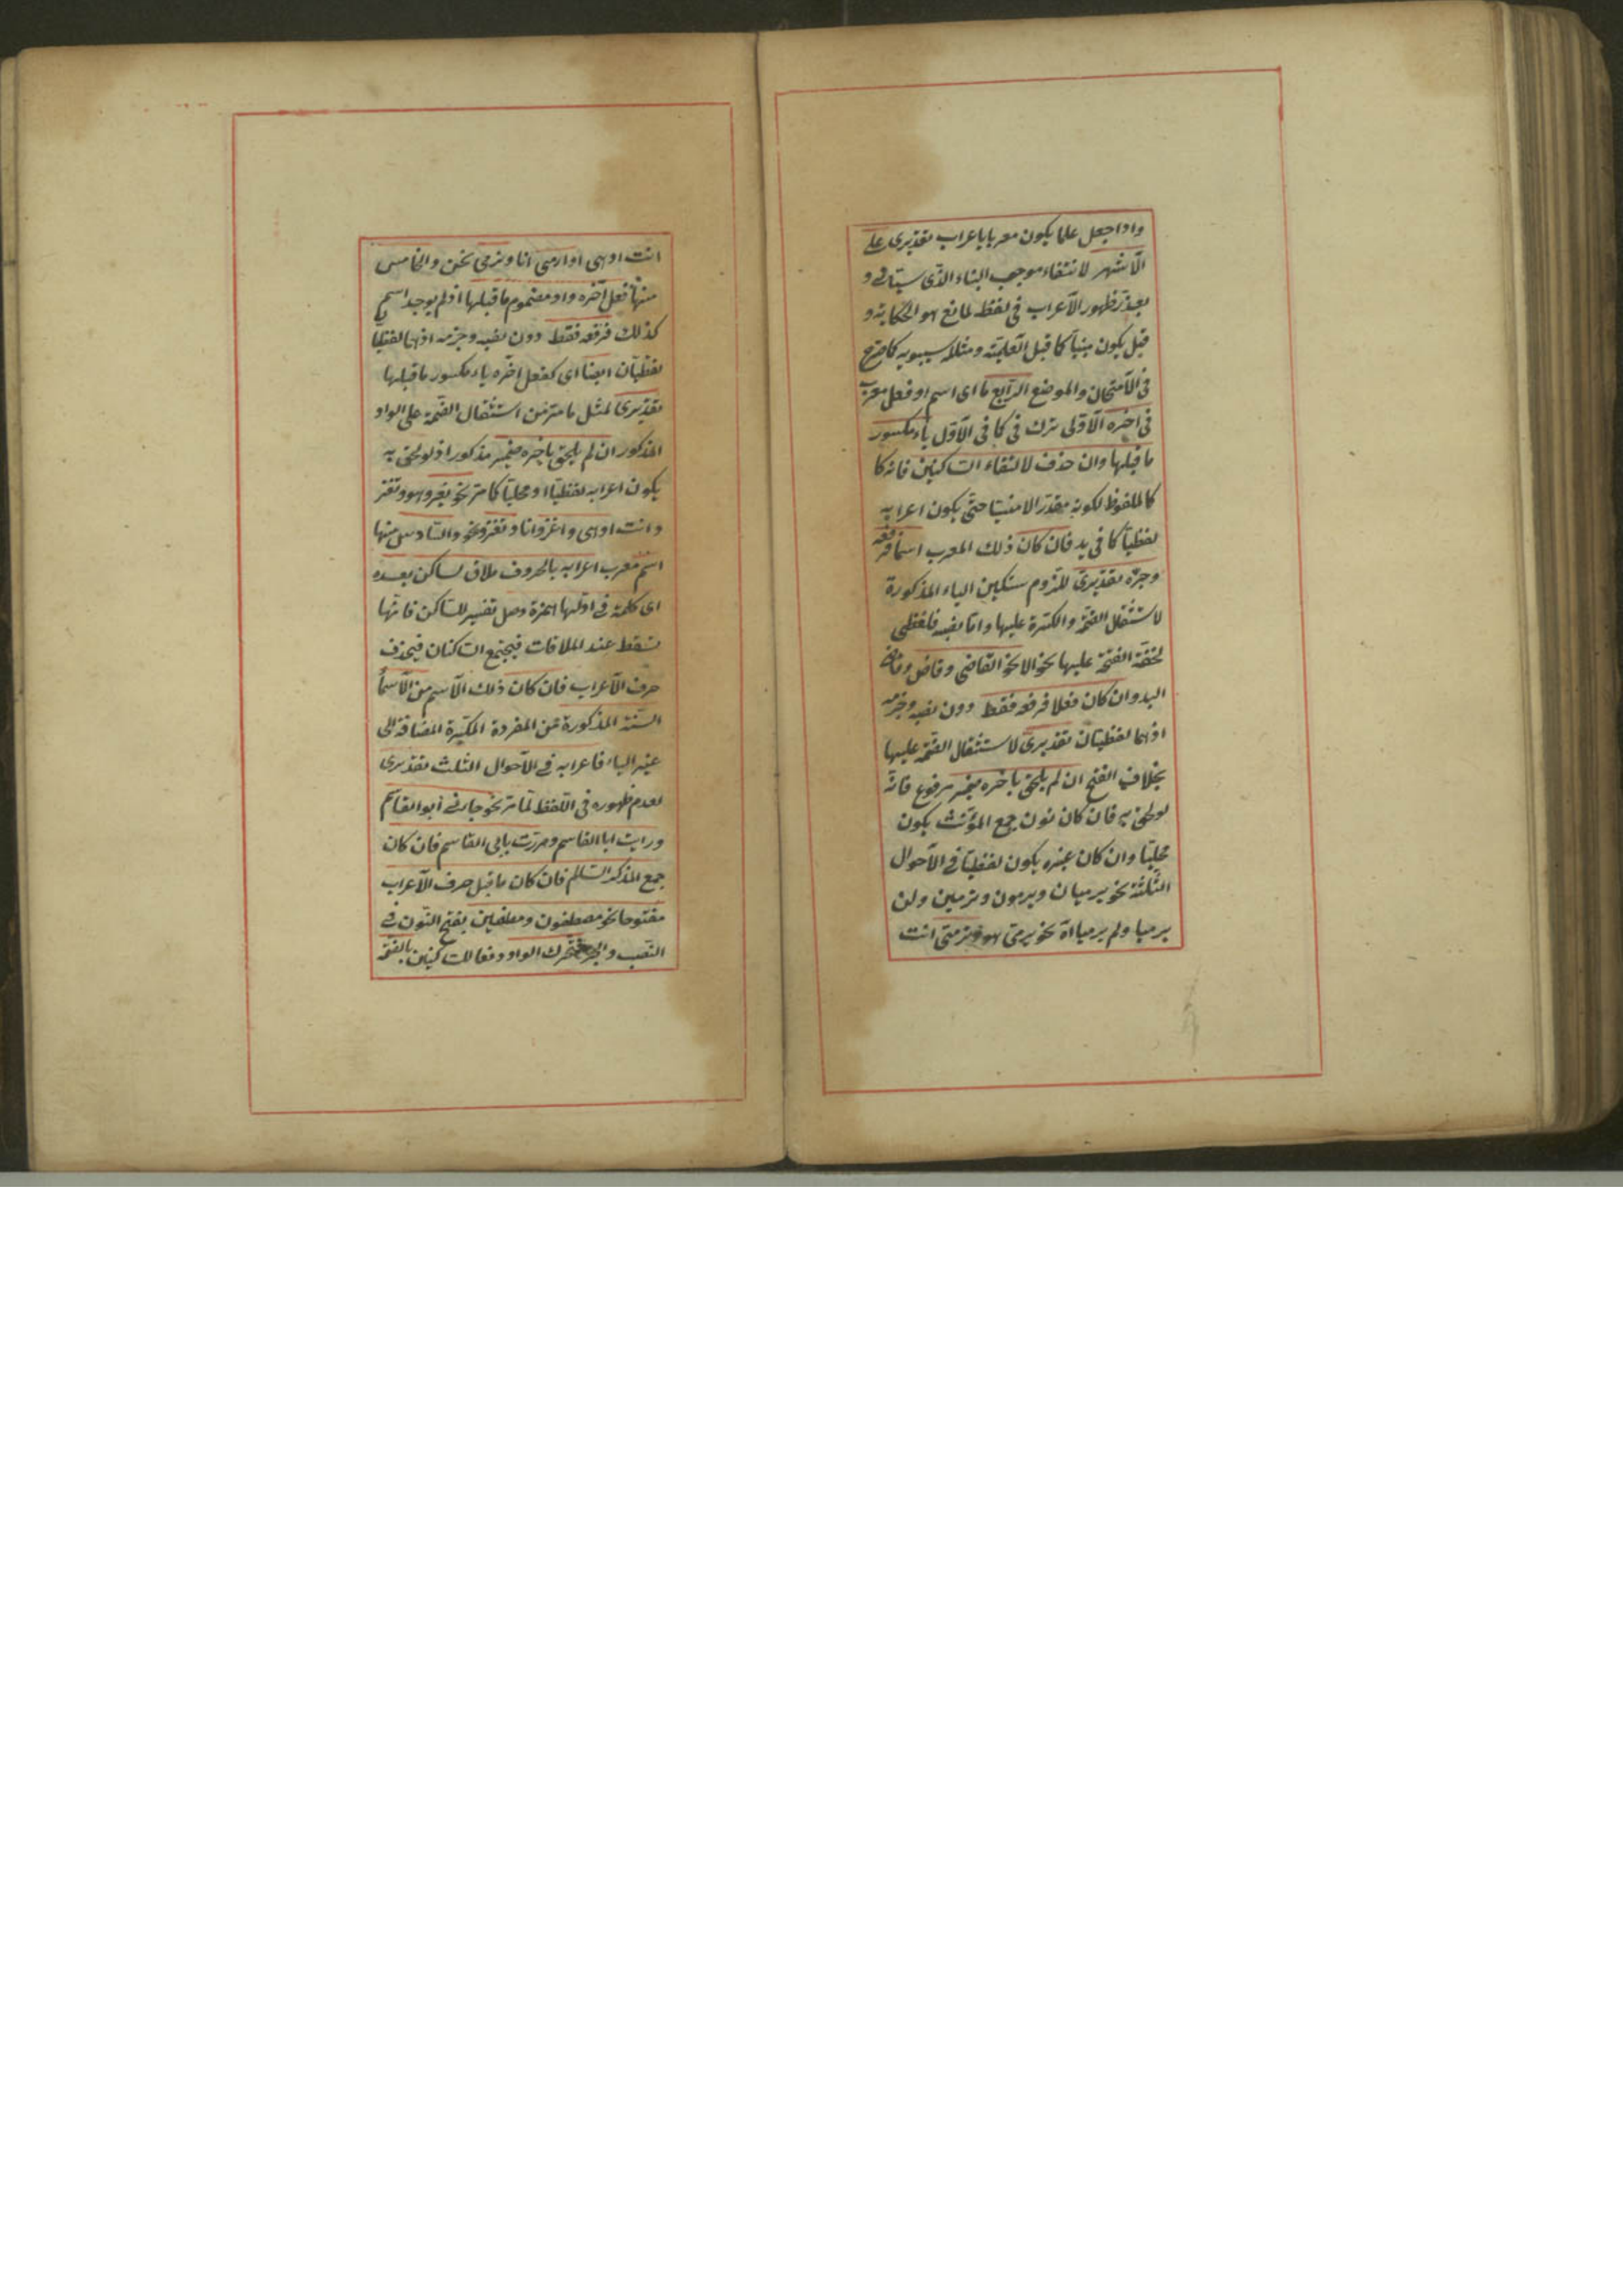 واذا جعل علما يكون معربا باعراب تقديرى على
الاشهر لانتفاء موجب البناء الذى سيأتى و
يعذر ظهور الاعراب فى لفظه لمانع هو الحكاية و
قيل يكون مبنيا كما قبل العلمية ومثله سيبويه كما صرح
فى الامتحان والموضع الرابع ما اى اسم او فعل معرب
فى اخره الاولى ترك فى كما فى الاول ياء مكسور
ما قبلها وان حذف لالتقاء الساكنين فانه كا
كالملفوظ لكونه مقدرا لا منسيا حتى يكون اعرابه
لفظيا كما فى يد فان كان ذلك المعرب اسما فرفعه
وجره تقديرى للزوم تسكين الياء المذكورة
لاستثقال الضمة والكسرة عليها واما نصبه فلفظى
لخفة الفتحة عليها نحو القاضى وقاض وقاضى
البلد وان كان فعلا فرفعه فقط دون نصبه وجزمه
اذهما لفظيتان تقديرى لاستثقال الضمة عليها
بخلاف الفتح ان لم يلحق باخره ضمير مرفوع فانه
لو لحق به فان كان نون جمع المؤنث يكون
محليا وان كان غيره يكون لفظيا فى الاحوال
الثلثة نحو يرميان ويرمون وترمين ولن
يرميا ولم يرميا اه نحو يرمى هو وترمى انت
انت او هى او ارمى انا ونرمى نحن والخامس
منها فعل آخره واو مضموم ما قبلها اذ لم يوجد اسم
كذلك فرفعه فقط دون نصبه وجزمه اذهما لفظيا
لفظيان ايضا اى كفعل اخره ياء مكسور ما قبلها
تقديرى لمثل ما مر من استثقال الضمة على الواو
المذكور ان لم يلحق باخره ضمير مذكور اذ لو لحق به
يكون اعرابه لفظيا او محليا كما مر نحو يغزو هو وتغز
وانت او هى واغزو انا ونغزو نحن والسادس منها
اسم معرب اعرابه بالحروف ملاق لساكن بعده
اى كلمة فى اولها همزة وصل تفسير للساكن فانها
تسقط عند الملاقات فيجتمع الساكنان فيحذف
حرف الاعراب فان كان ذلك الاسم من الاسماء
الستة المذكورة من المفردة المكبرة المضافة الى
غير الياء فاعرابه فى الاحوال الثلث تقديرى
لعدم ظهوره فى اللفظ لما مر نحو جاءنى ابو القاسم
ورايت ابا القاسم ومررت بابى القاسم فان كان
جمع المذكر السالم فان كان ما قبل حرف الاعراب
مفتوحا نحو مصطفون ومصطفين بفتح النون فى
النصب والجر فتحرك الواو دفعا للساكنين بالضمة